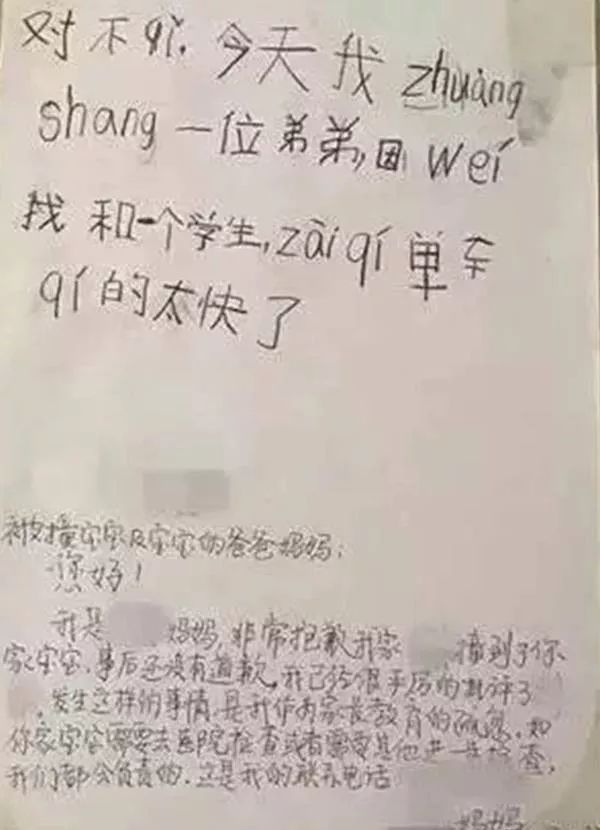 对不qǐ.今天我zhuàng
shang一位弟弟,因wéi
我和一个学生,zài qí单车
qí的太快了
被撞宝宝及宝宝的爸爸妈妈:
您好!
我是 妈妈,非常抱歉我家 撞到了你
家宝宝,事后还没有道歉,我已经很严厉的批评了
,发生这样的事情,是我作为家长教育的疏忽,如
你家宝宝需要去医院检查或者需要其他进一步检查,
我们都会负责的.这是我的联系电话
妈妈